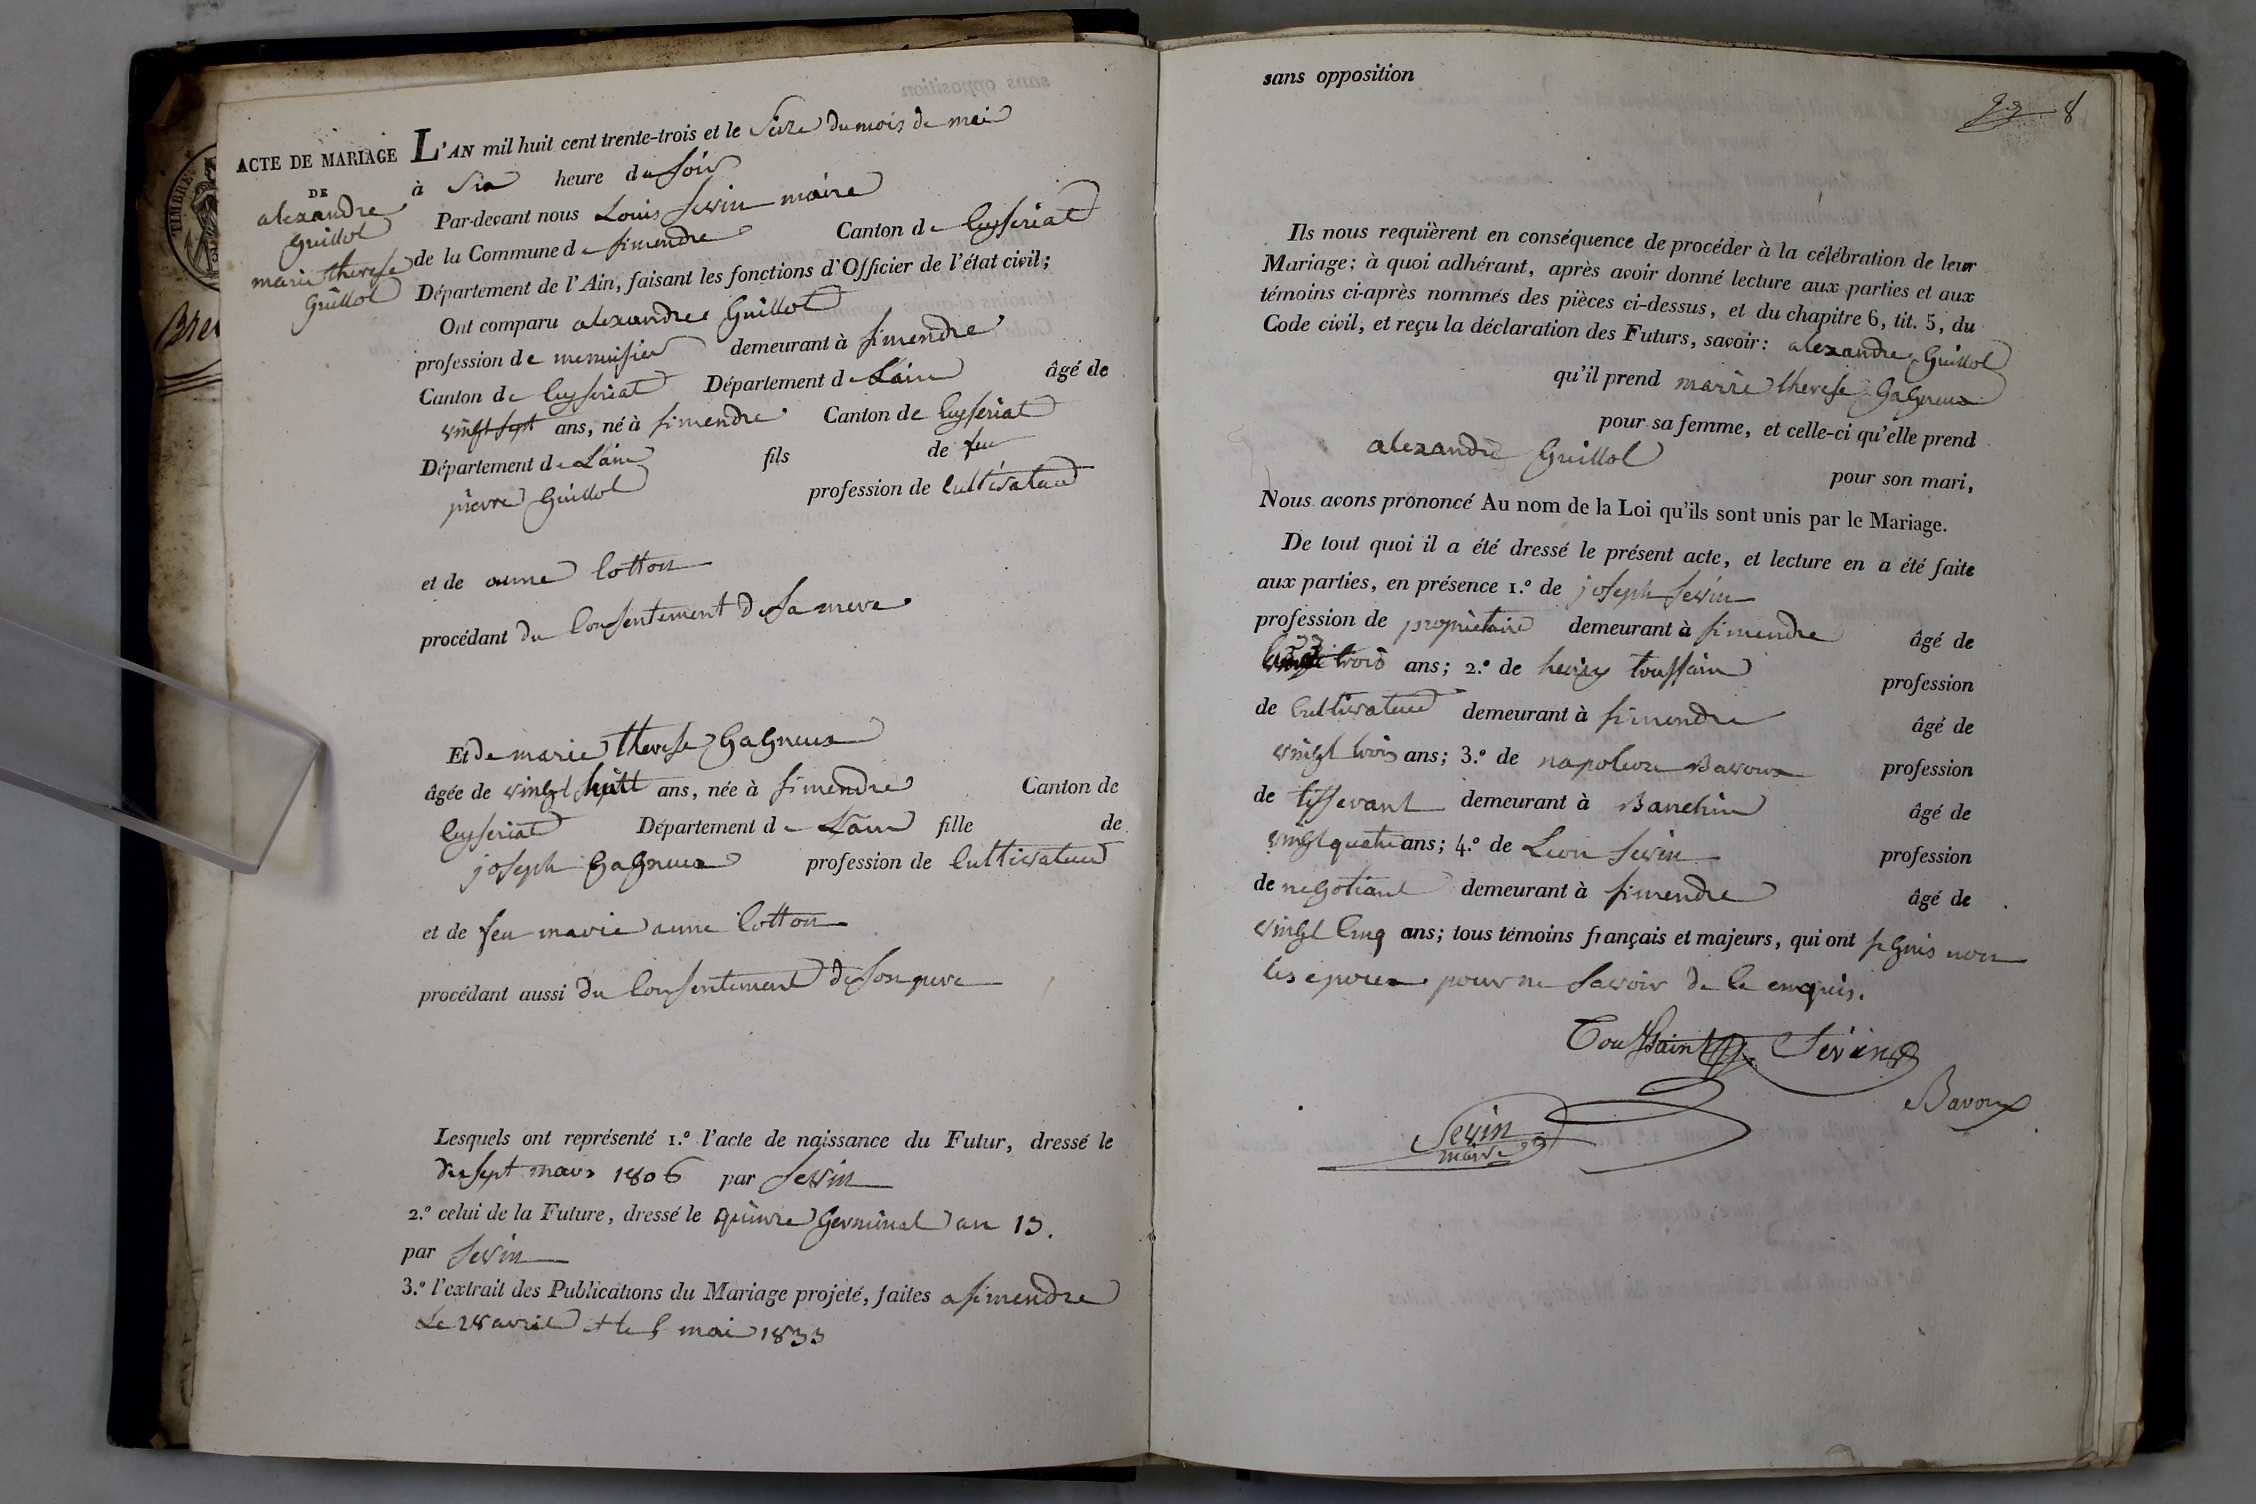 TIMBRE
Bre
ACTE DE MARIAGE
DE
alexandre
Guillot
marie therese
Guillot
L'AN mil huit cent trente-trois et le Seize du mois de mai
à Six heure du soir
Par-devant nous Louis Sevin maire
de la Commune de simendre Canton de Ceyseriat
Département de l'Ain, faisant les fonctions d'Officier de l'état civil;
Ont comparu alexandre Guillot
profession de menuisier demeurant à simendre
Canton de Ceyseriat Département de Lain âgé de
vingt sept ans, né à simendre Canton de Ceyseriat
Département de Lain fils de feu
pierre Guillot profession de Cultivateur
et de anne Cotton
procédant du Consentement de sa mere
Et de marie therese Gagneux
âgée de vingt huitt ans, née à simendre Canton de
Ceyseriat Département de Lain fille de
joseph Gagneux profession de Cultivateur
et de feu marie anne Cotton
procédant aussi du Consentement de son pere
Lesquels ont représenté 1.º l'acte de naissance du Futur, dressé le
dix sept mars 1806 par Sevin
2.º celui de la Future, dressé le quinze Germinal an 13.
par Sevin
3.º l'extrait des Publications du Mariage projeté, faites a simendre
Le 28 avril et le 5 mai 1833
sans opposition
8
Ils nous requièrent en conséquence de procéder à la célébration de leur
Mariage; à quoi adhérant, après avoir donné lecture aux parties et aux
témoins ci-après nommés des pièces ci-dessus, et du chapitre 6, tit. 5, du
Code civil, et reçu la déclaration des Futurs, savoir: alexandre Guillot
qu'il prend marie therese Gagneux
pour sa femme, et celle-ci qu'elle prend
alexandre Guillot
pour son mari,
Nous avons prononcé Au nom de la Loi qu'ils sont unis par le Mariage.
De tout quoi il a été dressé le présent acte, et lecture en a été faite
aux parties, en présence 1.º de joseph Sevin
profession de propriétaire demeurant à simendre âgé de
trois ans; 2.º de toussain profession
de Cultivateur demeurant à simendre âgé de
vingt trois ans; 3.º de napoleon Bavoux profession
de tisserant demeurant à Banchin âgé de
vingt quatre ans; 4.º de Leon Sevin profession
de negotiant demeurant à simendre âgé de
vingt Cinq ans; tous témoins français et majeurs, qui ont signés non
les epoux pour ne savoir de ce enquis.
Toussaint Sevin
Bavoux
Sevin
maire